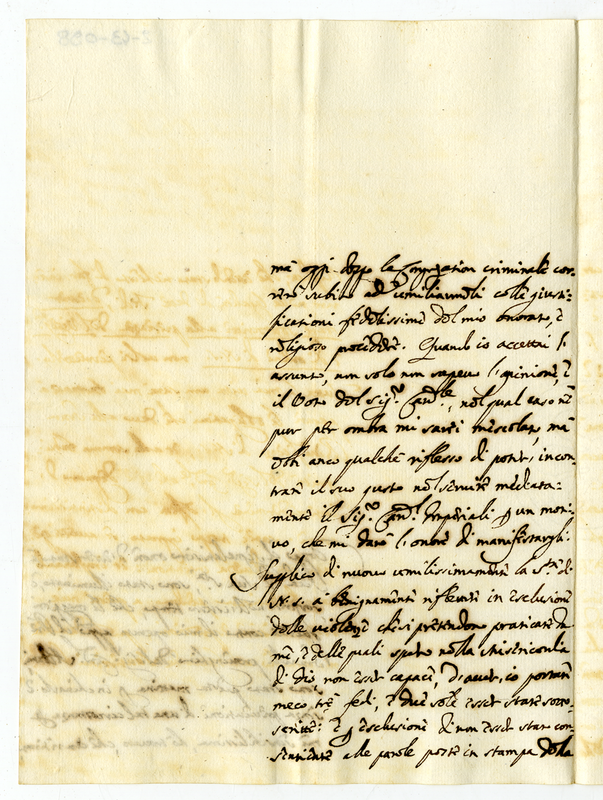 ma oggi doppo la Congregation criminale cor-
rerò subito ad umiliarmeli colle giusti-
ficationi fedelissime del mio onorato, è
religioso procedere. Quando io accettai l'
assunto, non solo non sapevo l'opinione, è
il Voto del Sig.r Card.le, nel qual caso nè
pur per ombra mi sarei mescolato, mà
ebbi anco qualche riflesso di poter, incon-
trare il suo gusto nel servire mediata-
mente il Sig.r Card.l Imperiali p un moti-
vo, che mi darò l'onore di manifestargli.
Supplico di nuovo umilissimamente la S.tà di
N. S. à benignamente riflettere in esclusione
delle violenze che si pretendono praticate da
me, è delle quali spero nella Misericordia
di Dio non esser capace, d'aver, io portate
meco trè fedi, è due sole esser state sotto-
scritte: è p esclusione di non esser stato con-
senziente alle parole poste in stampa della